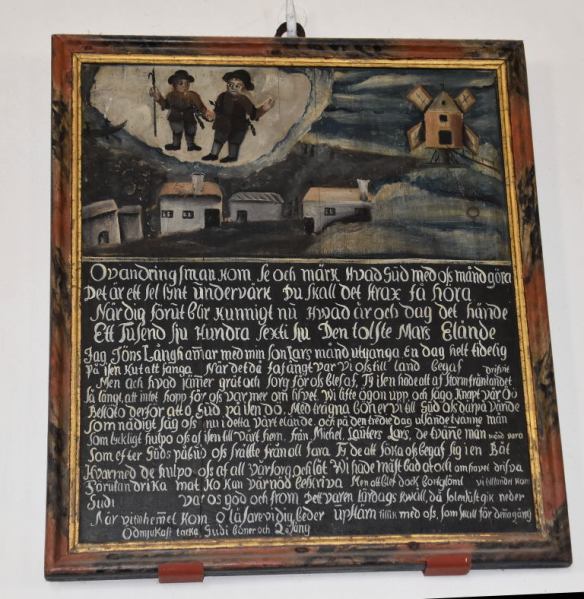 O vandringsman kom se och märk Hvad Gud med oss månd göra
Det är ett sel synt undervärk Du skall det strax få höra
När dig förut blir kunnigt nu Hvad år och dag det hände
Ett Tusend sju Hundra sexti sju Den tolfte Mars Elände
Jag Jöns Långhamar med min son Lars månd utgånga En dag helt tidelig
på isen Kutat fånga När det då fafängt var Vi oss till land begaf
Men och hvad jämer gråt och sorg för oss blef af, Ty isen hade alt af Storm från landet drifvit
så långt, att intet hopp för oss var mer om lifvet. Wi lifte ögon upp och sågo knapt vår Ö
Beslöto derför att å Gud på isen dö. Med trägna böner vi till Gud
som nådigt såg oss nu i detta vårt elände. och på den tredie dag
som lyckligt hulpo oss af isen till vårt hem. från Michel, Lauters Lars, de tvänne män
Som efter Guds påbud oss frälste från all fara. Ty de att söka oss begaf sig i en Båt
Hvarmed de hulpo oss af all vår sorg och låt. Wi hade mäst
Förutan drika mat Ho kan vår nöd beskriva Men ett vi till landet kom
Gudi va' oss god och from Dett varen Lördags kväll, då solen just gik neder
När vi till hemet kom O läsare vi dig beder upstäm tillik med oss, som skall för denna gång
Ödmjukast tacka Gudi böner och Låfsång